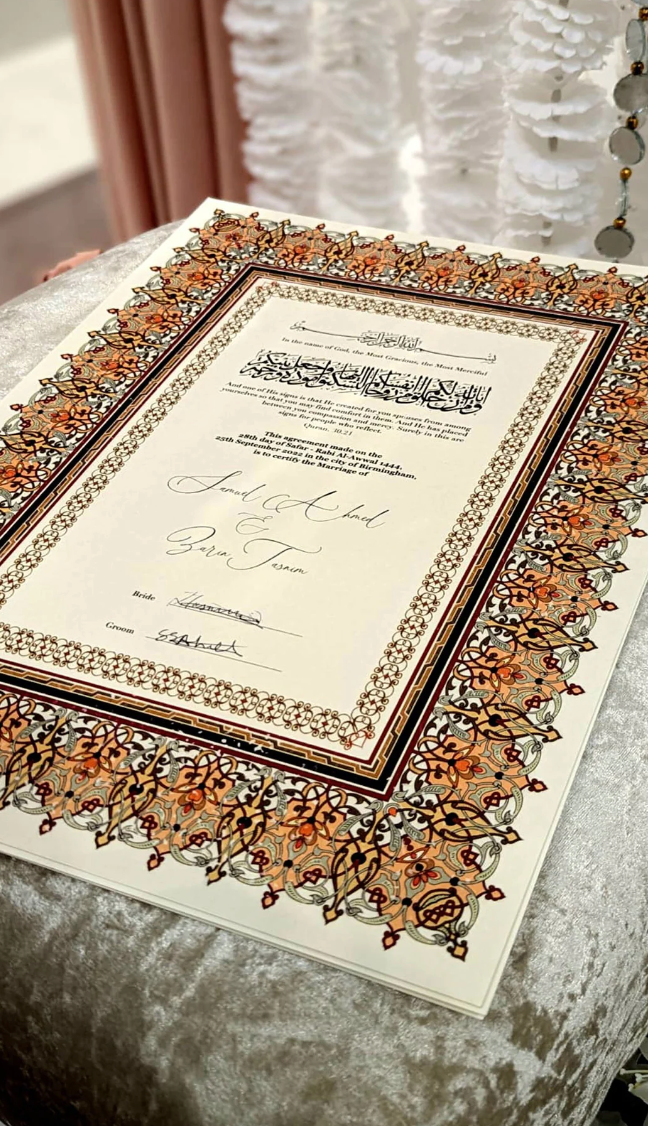 بسم الله الرحمن الرحيم
In the name of God, the Most Gracious, the Most Merciful
ومن آياته أن خلق لكم من أنفسكم أزواجا لتسكنوا إليها وجعل بينكم مودة ورحمة
And one of His signs is that He created for you spouses from among
yourselves so that you may find comfort in them. And He has placed
between you compassion and mercy. Surely in this are
signs for people who reflect.
Quran, 30:21
This agreement made on the
28th day of Safar - Rabi Al-Awwal 1444,
25th September 2022 in the city of Birmingham,
is to certify the Marriage of
Samuel Ahmed
&
Zarin Tasnim
Bride
Groom